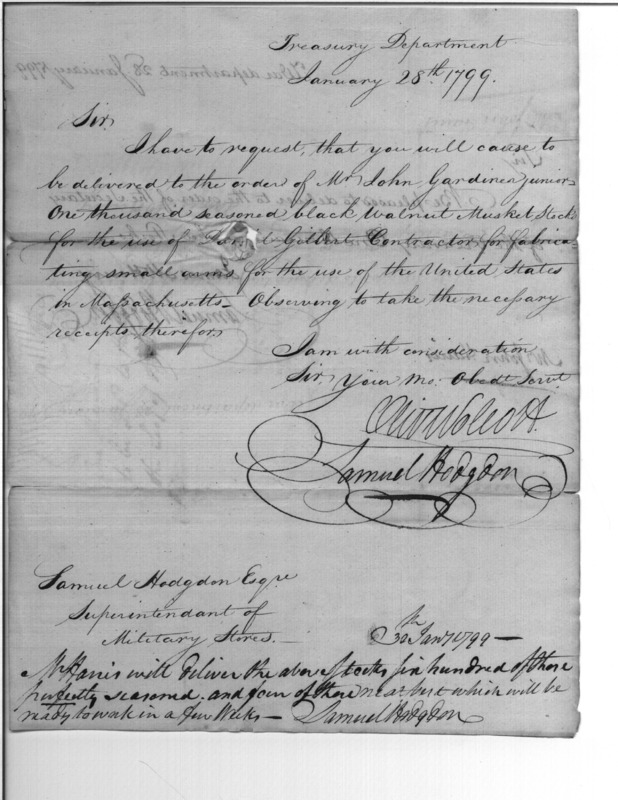 Treasury Department
January 28th 1799.
Sir,
I have to request, that you will cause to
be delivered to the order of Mr John Gardiner junior
One thousand seasoned black Walnut Musket Stocks
for the use of Gilbert Contractor for fabrica
ting small arms for the use of the United States
in Massachusetts — Observing to take the necessary
receipts therefor
I am with consideration
Sir, Your Mo: Obedt Servt
Oliv Wolcott.
Samuel Hodgdon
Samuel Hodgdon Esqre
Superintendant of
Military Stores. —
30 Jany 1799 —
Mr Harris will deliver the above Stocks six hundred of them
perfectly seasoned. and four of them next best which will be
ready to work in a few Weeks — Samuel Hodgdon